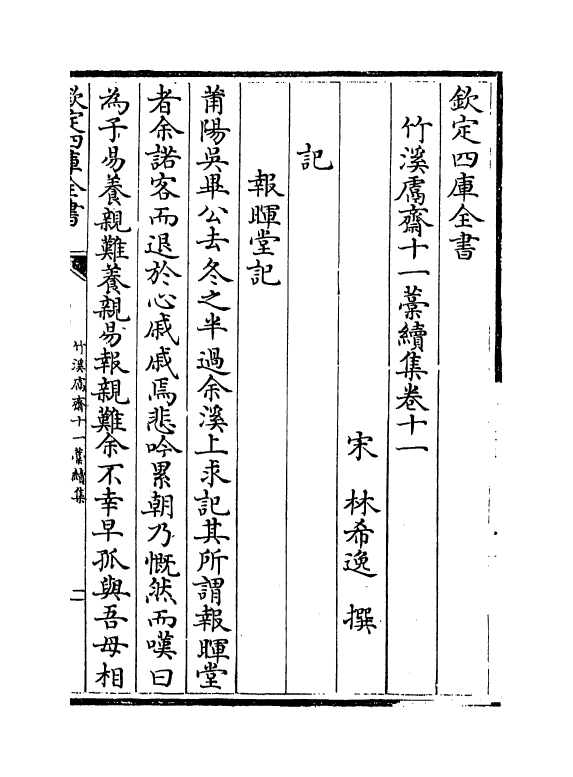 欽定四庫全書
竹溪鬳齋十一藳續集卷十一
宋 林希逸 撰
記
報暉堂記
莆陽吳畢公去冬之半過余溪上求記其所謂報暉堂
者余諾客而退於心戚戚焉悲吟累朝乃慨然而嘆曰
為子易養親難養親易報親難余不幸早孤與吾母相
欽定四庫全書
竹溪鬳齋十一藳續集